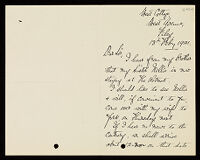 West Cottage,
West Avenue,
Filey
13th Feby 1901.
Dear Sir, I hear from my Mother
that my sister Nellie is now
staying at The
I should like to see Nellie
& will, if convenient to you
come over with my wife to
you on Thursday next
If I hear no news to the
contrary, we shall arrive
about 2 on that date